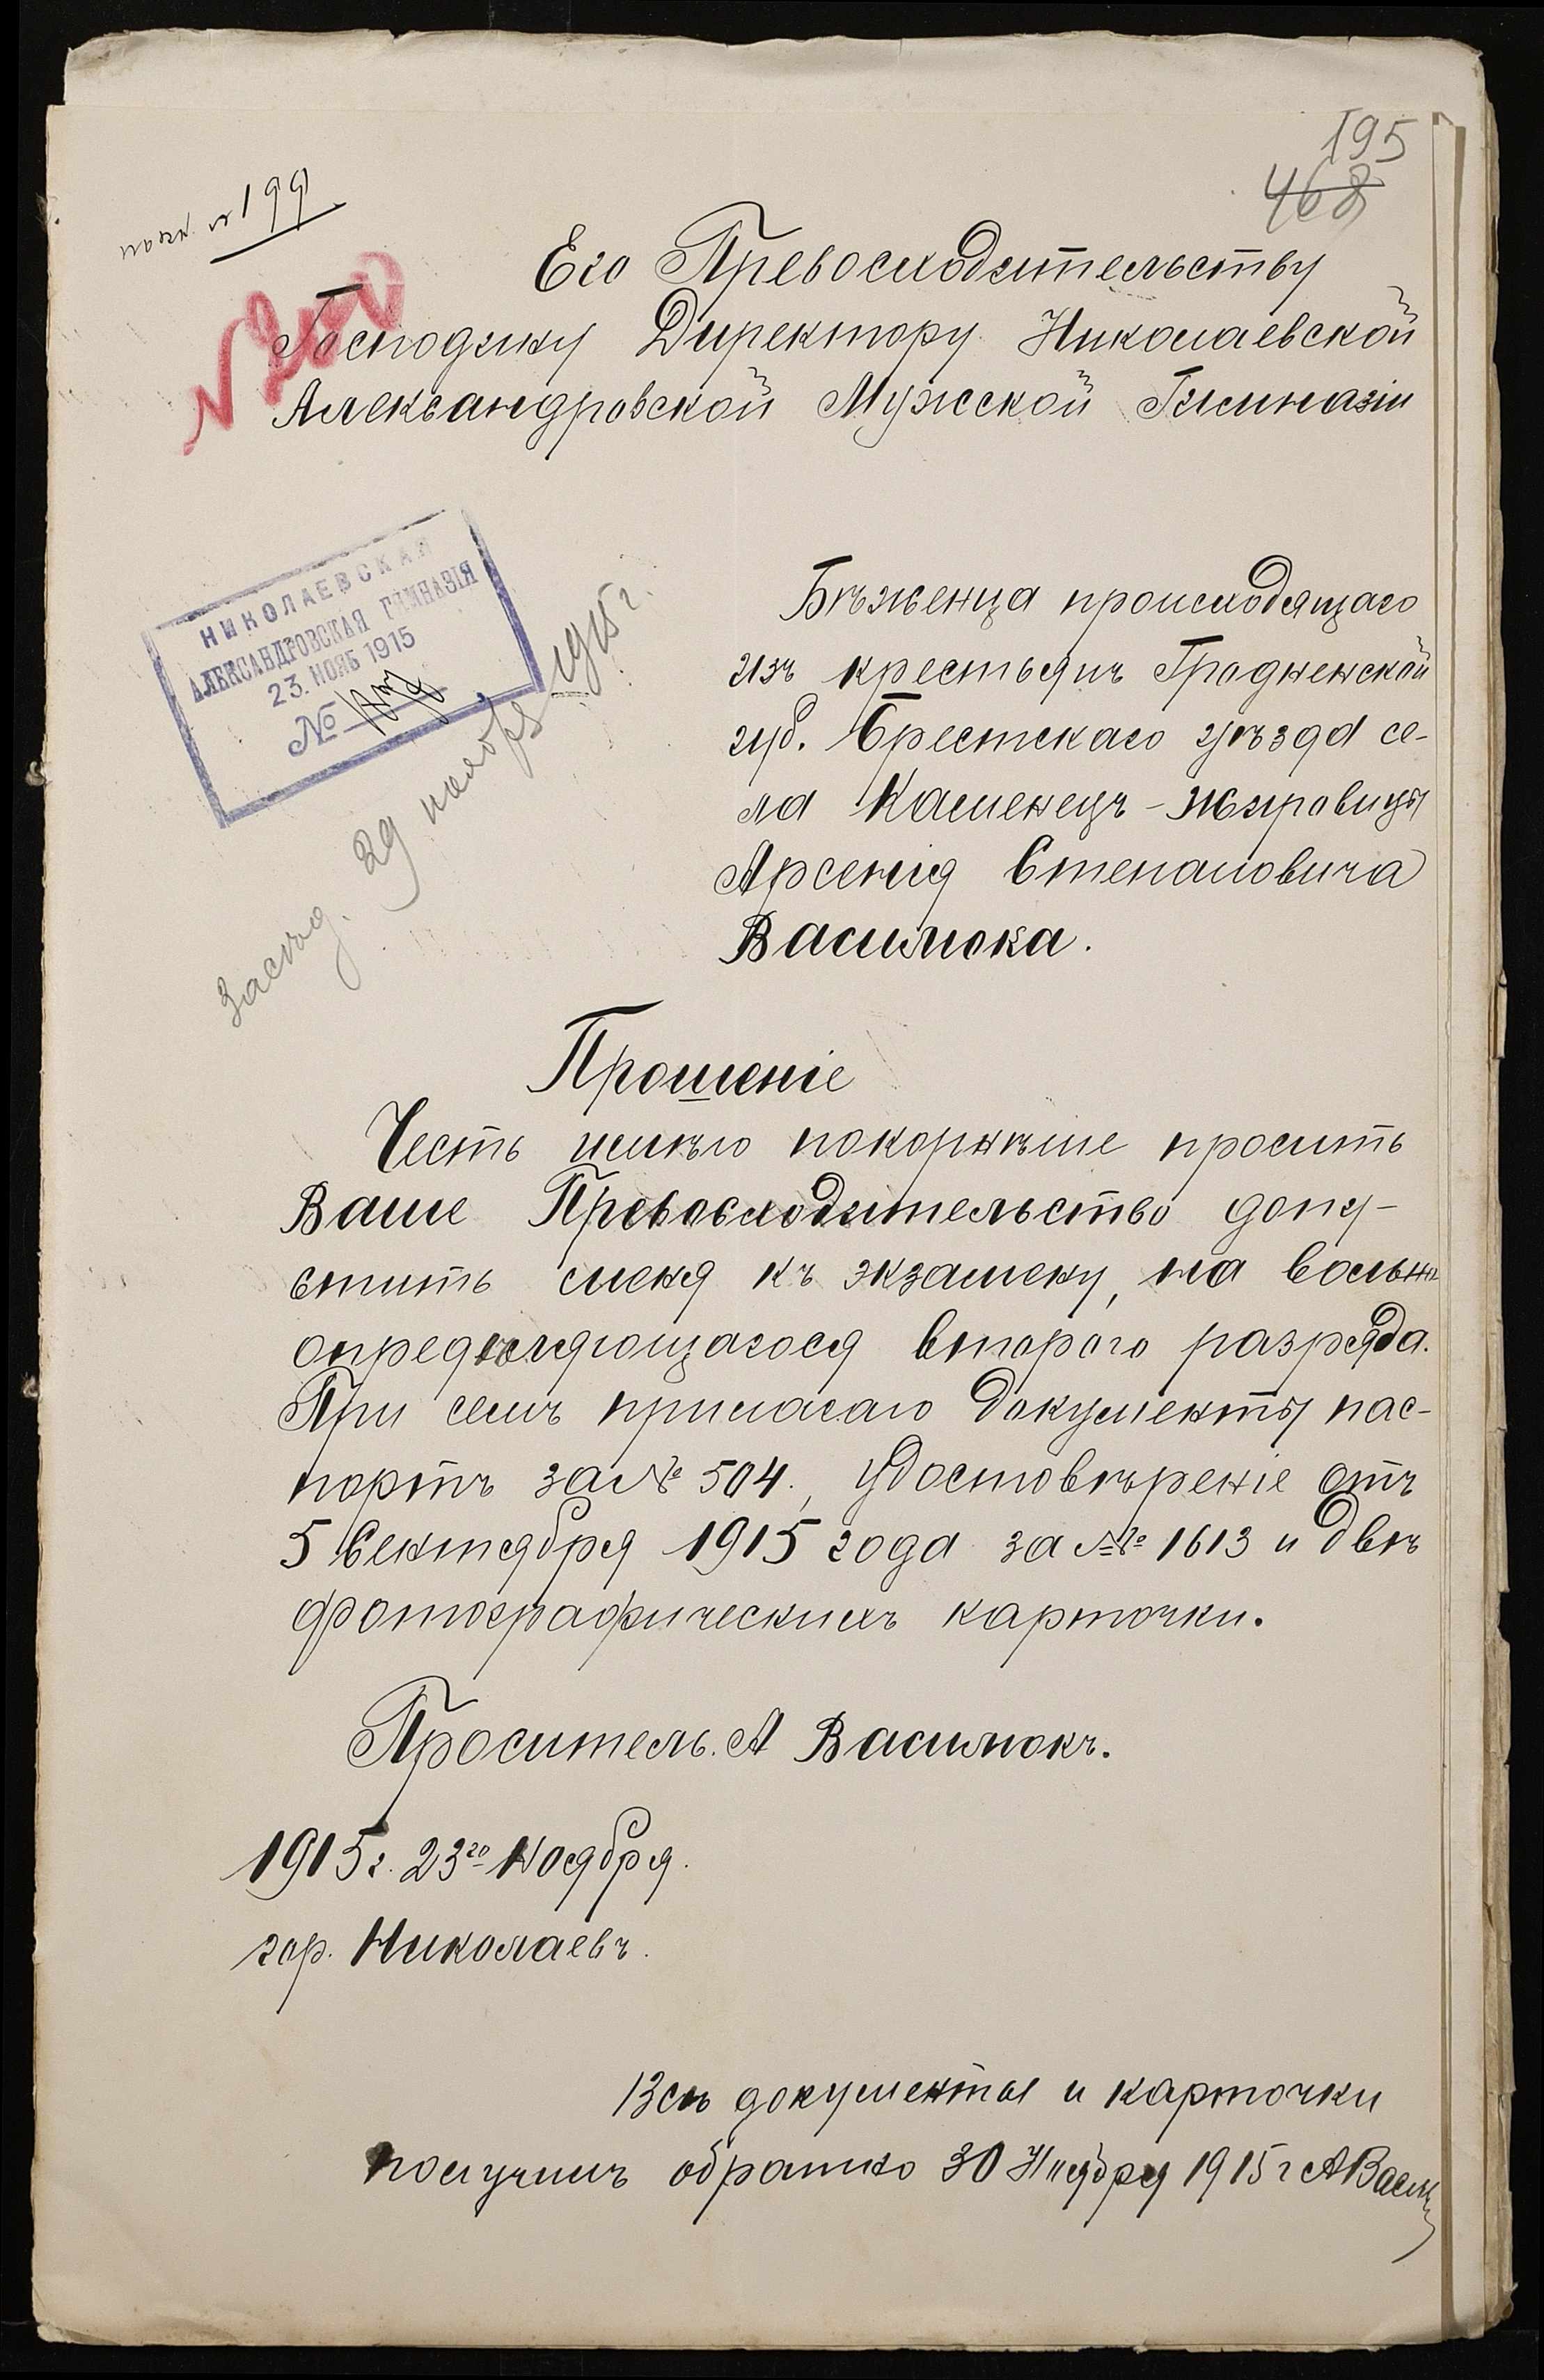 195
468
№ 199
№ 200
Его Превосходительству
Господину Директору Николаевской
Александровской Мужской Гимназіи
НИКОЛАЕВСКАЯ
АЛЕКСАНДРОВСКАЯ ГИМНАЗІЯ
23. НОЯБ 1915
№
Засѣд. 29 ноября 1915 г.
Бѣженца происходящаго
изъ крестьянъ Гродненской
губ. Брестскаго уѣзда се-
ла Каменецъ-Жировицы
Арсенія Степановича
Василюка.
Прошеніе
Честь имѣю покорнѣше просить
Ваше Превосходительство допу-
стить меня къ экзамену, на вольно
опредѣляющагося второго разряда.
При семъ прилагаю документы пас-
портъ за № 504., удостовѣреніе отъ
5 Сентября 1915 года за № 1613 и двѣ
фотографическихъ карточки.
Проситель. А Василюкъ.
1915 г. 23го Ноября.
гор. Николаевъ.
Всѣ документы и карточки
получилъ обратно 30 Ноября 1915 г А Васил